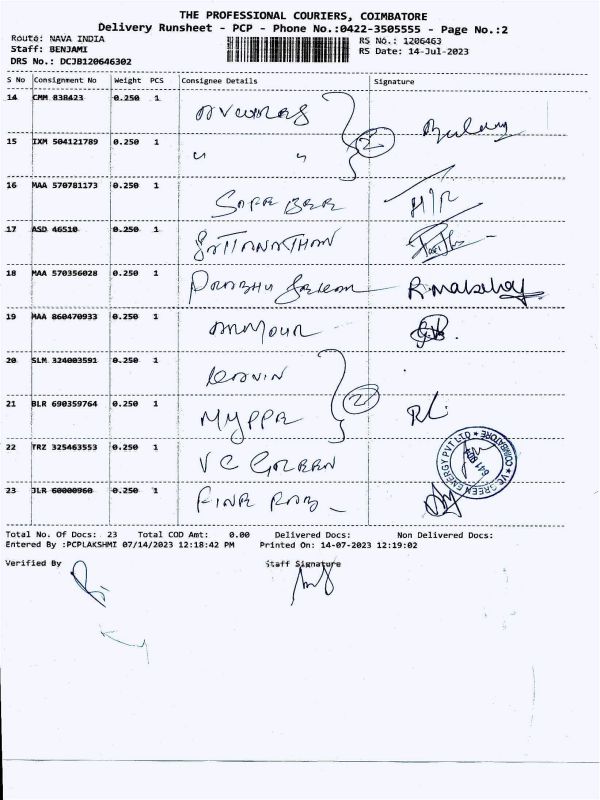 THE PROFESSIONAL COURIERS, COIMBATORE
Delivery Runsheet - PCP - Phone No.:0422-3505555 - Page No.:2
Route: NAVA INDIA
RS No.: 1206463
Staff: BENJAMI
RS Date: 14-Jul-2023
DRS No.: DCJB120646302
S No Consignment No Weight PCS Consignee Details Signature
14 CMM 838423 0.250 1
15 IXM 504121789 0.250 1 " " 2
16 MAA 570781173 0.250 1 H/R
17 ASD 46510 0.250 1
18 MAA 570356028 0.250 1 PRABHU
19 MAA 860470933 0.250 1
20 SLM 324003591 0.250 1
21 BLR 690359764 0.250 1 MYPPR 2
22 TRZ 325463553 0.250 1 VC GREEN
VC GREEN ENERGY PVT LTD ★ COIMBATORE ★
23 JLR 60000960 0.250 1 FINE
Total No. of Docs: 23 Total COD Amt: 0.00 Delivered Docs: Non Delivered Docs:
Entered By :PCPLAKSHMI 07/14/2023 12:18:42 PM Printed On: 14-07-2023 12:19:02
Verified By Staff Signature